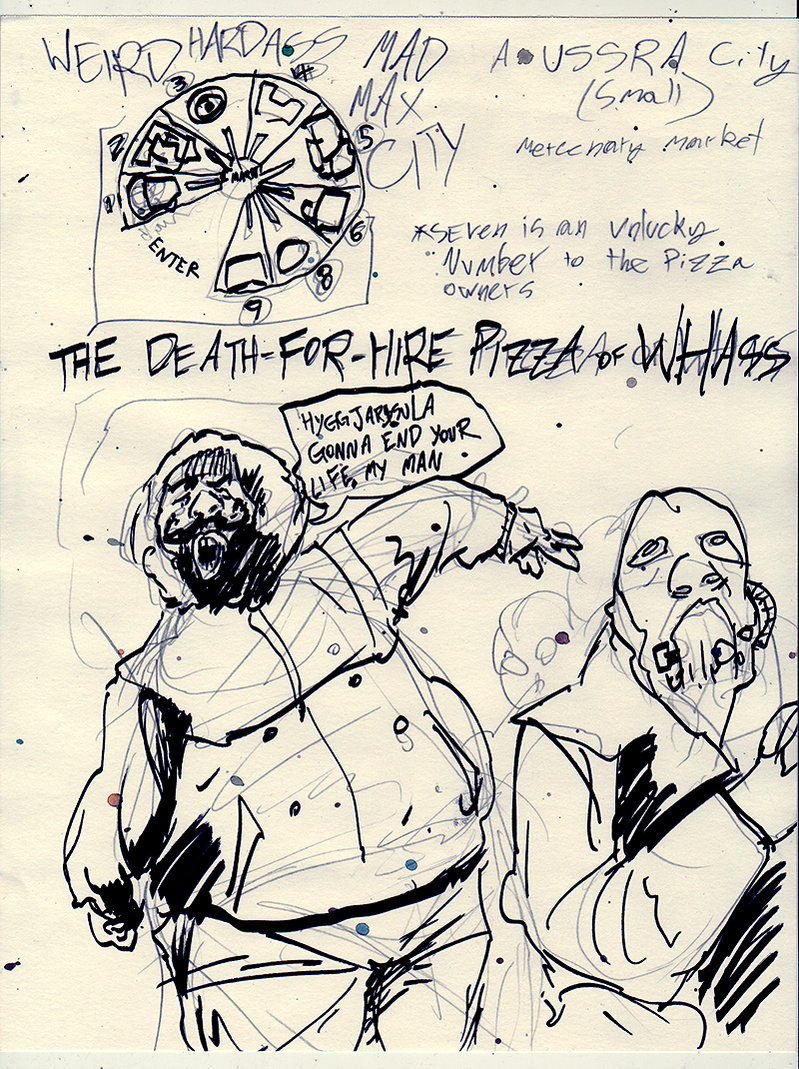 WEIRD HARDASS MAD
MAX
CITY
A USSRA City
(Small)
mercenary market
*SEVEN is an unlucky
Number to the Pizza
owners
1
2
3
4
5
6
8
9
ENTER
THE DEATH-FOR-HIRE PIZZA OF WHASS
GONNA END YOUR
LIFE, MY MAN